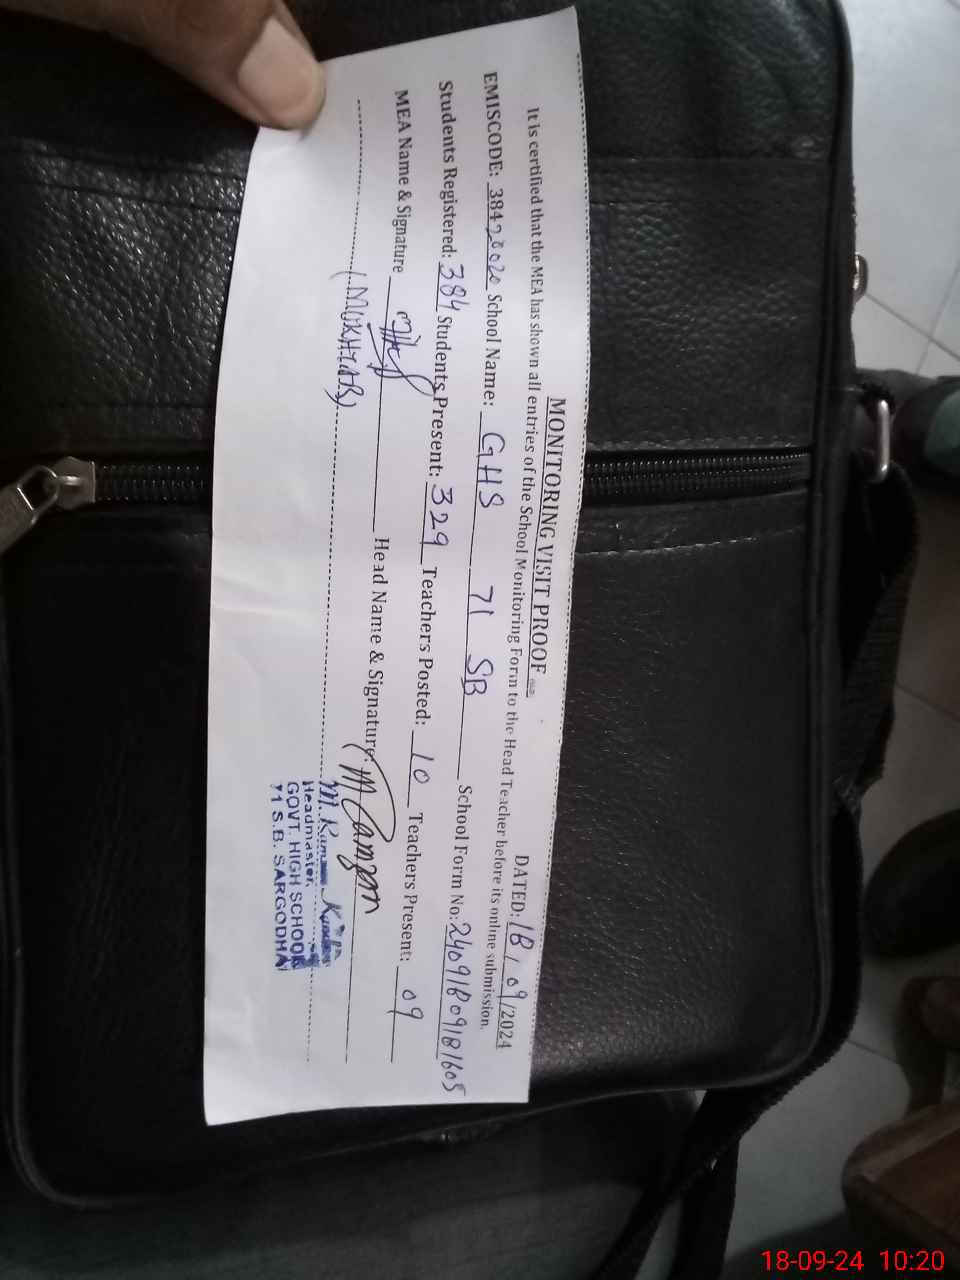 MONITORING VISIT PROOF
DATED: 18/09/2024
It is certified that the MEA has shown all entries of the School Monitoring Form to the Head Teacher before its online submission.
EMISCODE: 38420020 School Name: GHS 71 SB School Form No: 24091809181605
Students Registered: 384 Students Present: 329 Teachers Posted: 10 Teachers Present: 09
MEA Name & Signature Head Name & Signature: M Ramzan
(MUKHTAR)
Headmaster,
GOVT. HIGH SCHOOL
71 S.B. SARGODHA
18-09-24 10:20